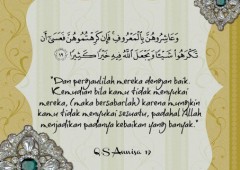 وَعَاشِرُوهُنَّ بِالْمَعْرُوفِ فَإِن كَرِهْتُمُوهُنَّ فَعَسَىٰ أَن
تَكْرَهُوا شَيْئًا وَيَجْعَلَ اللَّهُ فِيهِ خَيْرًا كَثِيرًا ۝١٩
"Dan pergaulilah mereka dengan baik.
Kemudian bila kamu tidak menyukai
mereka, (maka bersabarlah) karena mungkin
kamu tidak menyukai sesuatu, padahal Allah
menjadikan padanya kebaikan yang banyak."
Q S Annisa 19